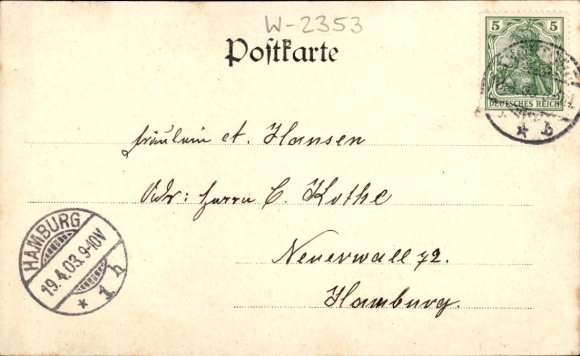 W-2353
Postkarte
5 5
DEUTSCHES REICH
Fräulein A. Hansen
Adr: Herrn C. Kothe
Neuerwall 72.
Hamburg.
HAMBURG
19.4.03.9-10V
* 1 h